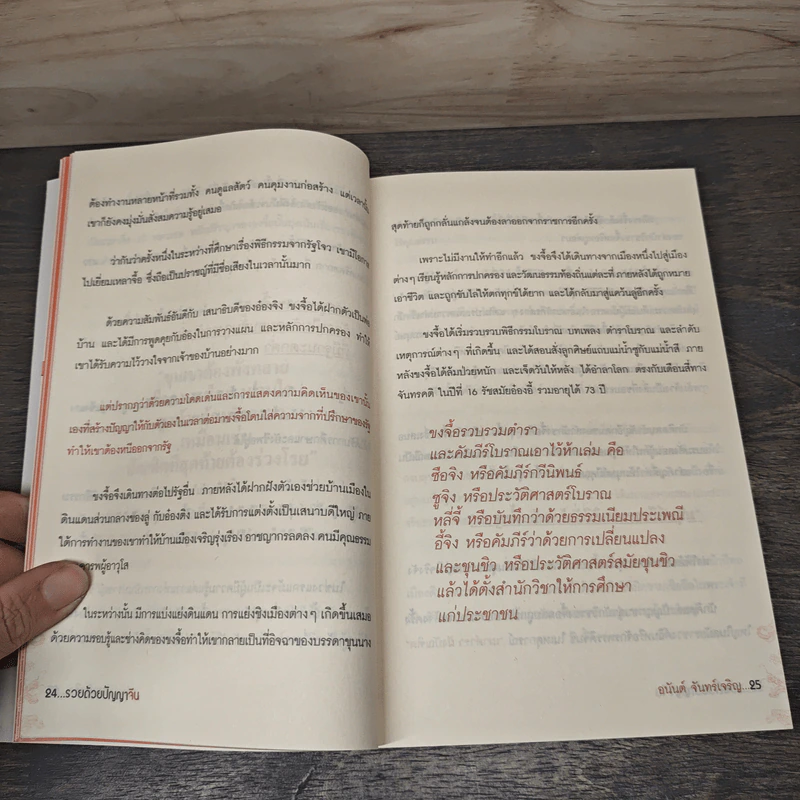 ต้องทำงานหลายหน้าที่รวมทั้ง คนดูแลสัตว์ คนคุมงานก่อสร้าง แต่เวลานั้น
เขาก็ยังคงมุ่งมั่นสั่งสมความรู้อยู่เสมอ
ว่ากันว่าครั้งหนึ่งในระหว่างที่ศึกษาเรื่องพิธีกรรมจากรัฐโจว เขามีโอกาส
ไปเยี่ยมเหลาจื๊อ ซึ่งถือเป็นปราชญ์ที่มีชื่อเสียงในเวลานั้นมาก
ด้วยความสัมพันธ์อันดีกับ เสนาธิบดีของอ๋องจิง ขงจื๊อได้ฝากตัวเป็นพ่อ
บ้าน และได้มีการพูดคุยกับอ๋องในการวางแผน และหลักการปกครอง ทำให้
เขาได้รับความไว้วางใจจากเจ้าของบ้านอย่างมาก
แต่ปรากฏว่าด้วยความโดดเด่นและการแสดงความคิดเห็นของเขานั้น
เองที่สร้างปัญญาให้กับตัวเองในเวลาต่อมาขงจื๊อโดนใส่ความจากที่ปรึกษาของรัฐ
ทำให้เขาต้องหนีออกจากรัฐ
ขงจื๊อจึงเดินทางต่อไปรัฐอื่น ภายหลังได้ฝากฝังตัวเองช่วยบ้านเมืองใน
ดินแดนส่วนกลางของลู่ กับอ๋องติง และได้รับการแต่งตั้งเป็นเสนาบดีใหญ่ ภาย
ใต้การทำงานของเขาทำให้บ้านเมืองเจริญรุ่งเรือง อาชญากรลดลง คนมีคุณธรรม
ารพผู้อาวุโส
ในระหว่างนั้น มีการแบ่งแย่งดินแดน การแย่งชิงเมืองต่าง ๆ เกิดขึ้นเสมอ
ด้วยความรอบรู้และช่างคิดของขงจื๊อทำให้เขากลายเป็นที่อิจฉาของบรรดาขุนนาง
24...รวยด้วยปัญญาจีน
สุดท้ายก็ถูกกลั่นแกล้งจนต้องลาออกจากราชการอีกครั้ง
เพราะไม่มีงานให้ทำอีกแล้ว ขงจื๊อจึงได้เดินทางจากเมืองหนึ่งไปสู่เมือง
ต่างๆ เรียนรู้หลักการปกครอง และวัฒนธรรมท้องถิ่นแต่ละที่ ภายหลังได้ถูกหมาย
เอาชีวิต และถูกขับไล่ให้ตกทุกข์ได้ยาก และได้กลับมาสู่แคว้นลู่อีกครั้ง
ขงจื๊อได้เริ่มรวบรวมพิธีกรรมโบราณ บทเพลง ตำราโบราณ และลำดับ
เหตุการณ์ต่างๆ ที่เกิดขึ้น และได้สอนสั่งลูกศิษย์แถบแม่น้ำซูกับแม่น้ำสี ภาย
หลังขงจื๊อได้ล้มป่วยหนัก และเจ็ดวันให้หลัง ได้อำลาโลก ตรงกับเดือนสี่ทาง
จันทรคติ ในปีที่ 16 รัชสมัยอ๋องอี้ รวมอายุได้ 73 ปี
ขงจื๊อรวบรวมตำรา
และคัมภีร์โบราณเอาไว้ห้าเล่ม คือ
ซือจิง หรือคัมภีร์กวีนิพนธ์
ซูจิง หรือประวัติศาสตร์โบราณ
หลี่จี้ หรือบันทึกว่าด้วยธรรมเนียมประเพณี
อี้จิง หรือคัมภีร์ว่าด้วยการเปลี่ยนแปลง
และชุนชิว หรือประวัติศาสตร์สมัยชุนชิว
แล้วได้ตั้งสำนักวิชาให้การศึกษา
แก่ประชาชน
อนันต์ จันทร์เจริญ...25